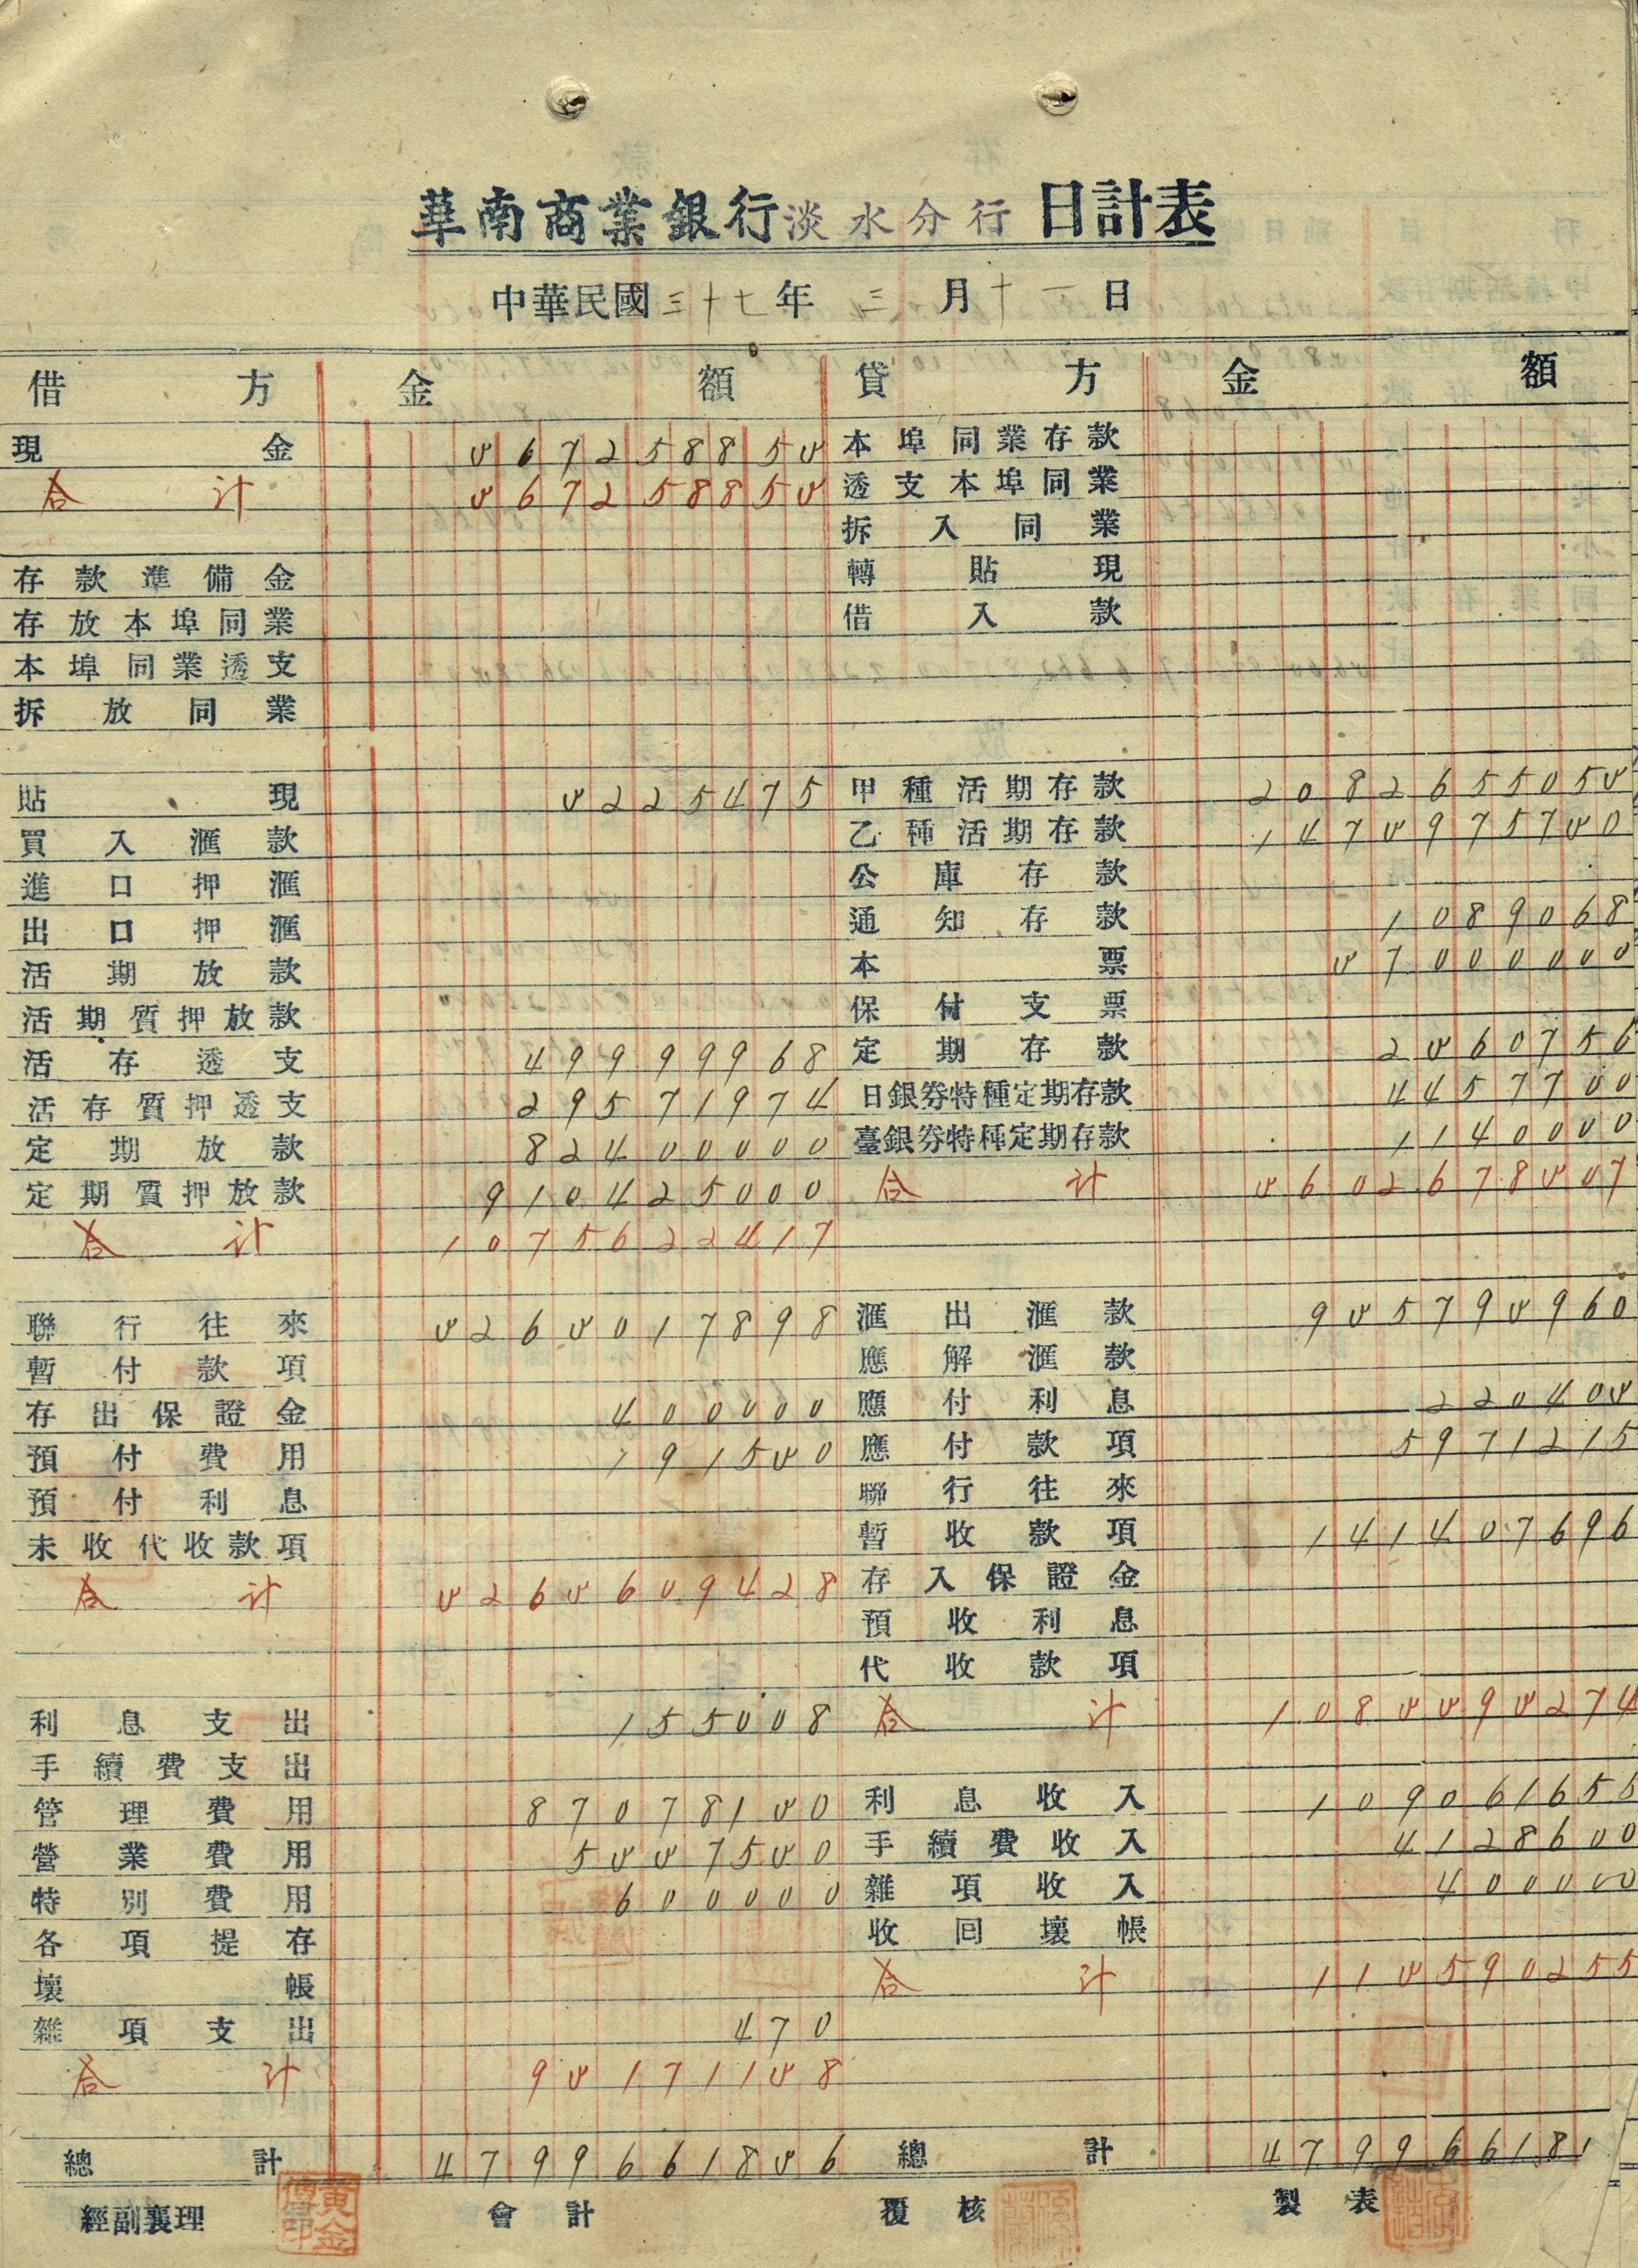 華南商業銀行淡水分行 日計表
中華民國三十七年 三 月十一日
借方 金額 貸方 金額
現金 367258853 本埠同業存款
合計 367258853 透支本埠同業
拆入同業
存款準備金 轉貼現
存放本埠同業 借入款
本埠同業透支
拆放同業
貼現 3225475 甲種活期存款 2082655053
買入滙款 乙種活期存款 1473975730
進口押滙 公庫存款
出口押滙 通知存款 1089068
活期放款 本票 37000000
活期質押放款 保付支票
活存透支 49999968 定期存款 2360756
活存質押透支 29571974 日銀券特種定期存款 4457700
定期放款 82400000 臺銀券特種定期存款 1140000
定期質押放款 910425000 合計 3602678307
合計 1075622417
聯行往來 3263017898 滙出滙款 935793960
暫付款項 應解滙款
存出保證金 400000 應付利息 220403
預付費用 191530 應付款項 5971215
預付利息 聯行往來
未收代收款項 暫收款項 141407696
合計 3263609428 存入保證金
預收利息
代收款項
利息支出 155008 合計 1083393274
手續費支出
管理費用 87078130 利息收入 109061655
營業費用 5337530 手續費收入 4128600
特別費用 600000 雜項收入 400000
各項提存 收回壞帳
壞帳 合計 113590255
雜項支出 470
合計 93171138
總計 4799661836 總計 479966181
經副襄理 會計 覆核 製表